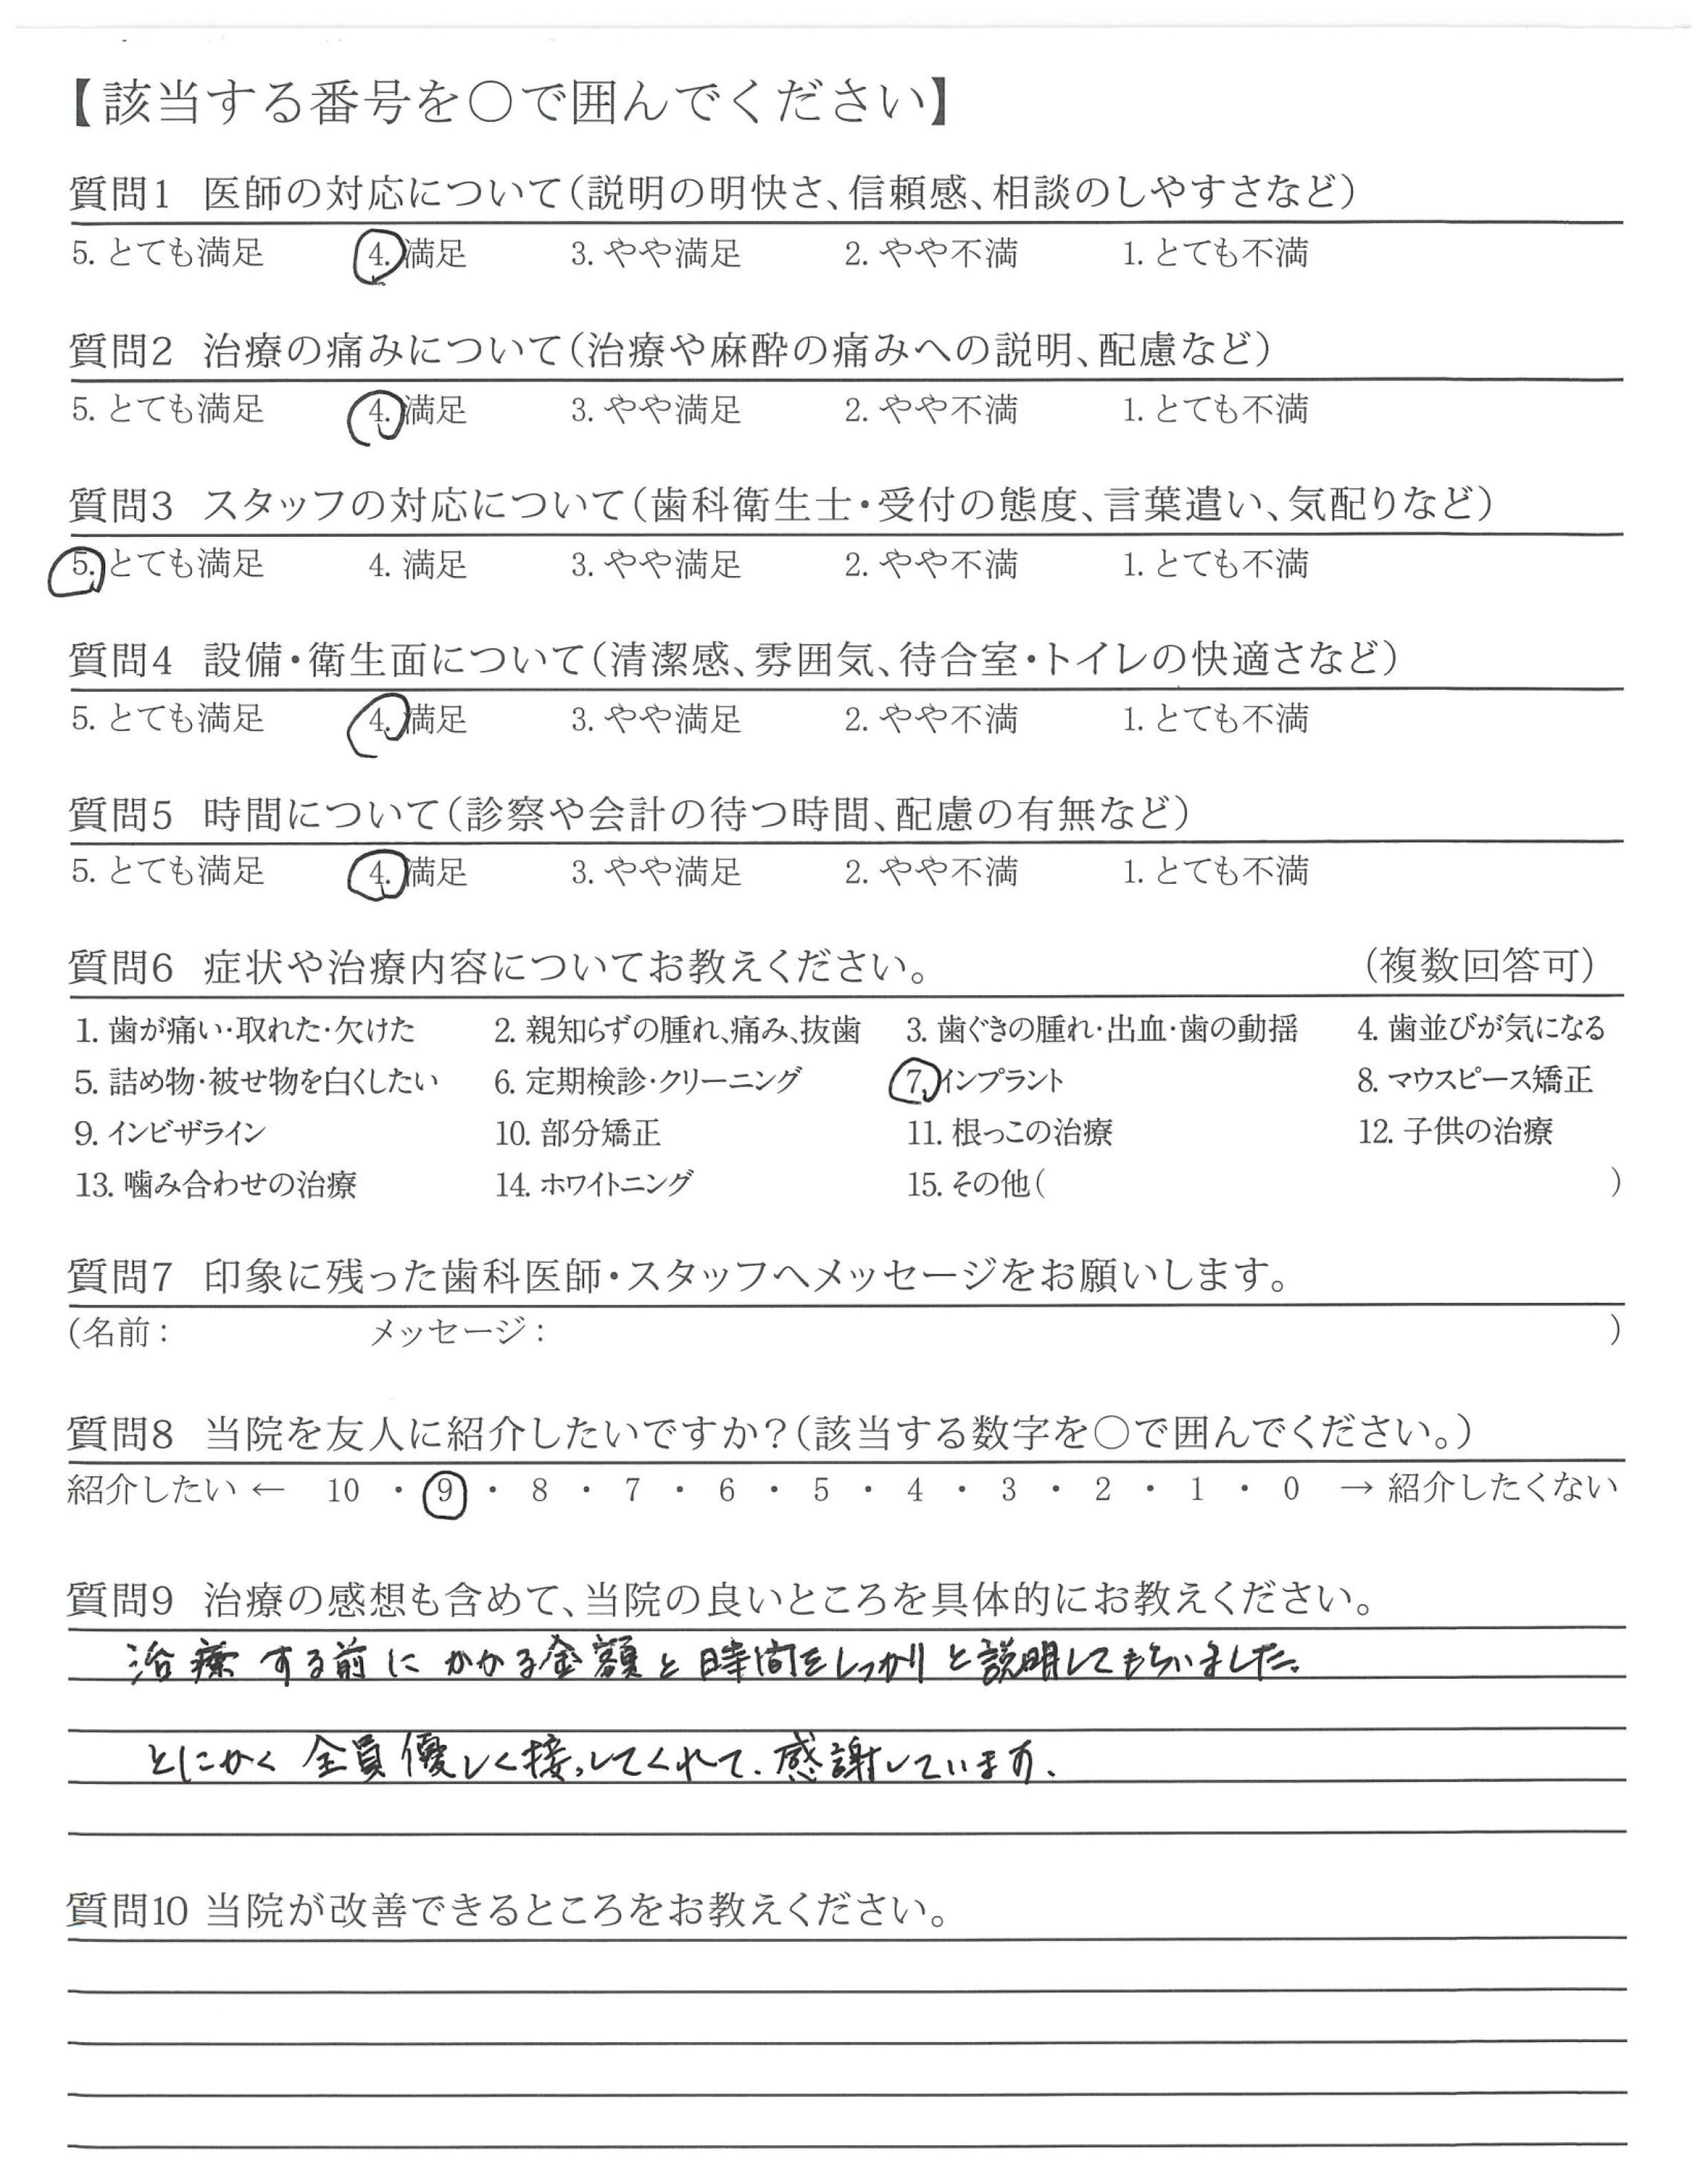 【該当する番号を○で囲んでください】
質問1 医師の対応について（説明の明快さ、信頼感、相談のしやすさなど）
5. とても満足 4. 満足 3. やや満足 2. やや不満 1. とても不満
質問2 治療の痛みについて（治療や麻酔の痛みへの説明、配慮など）
5. とても満足 4. 満足 3. やや満足 2. やや不満 1. とても不満
質問3 スタッフの対応について（歯科衛生士・受付の態度、言葉遣い、気配りなど）
5. とても満足 4. 満足 3. やや満足 2. やや不満 1. とても不満
質問4 設備・衛生面について（清潔感、雰囲気、待合室・トイレの快適さなど）
5. とても満足 4. 満足 3. やや満足 2. やや不満 1. とても不満
質問5 時間について（診察や会計の待つ時間、配慮の有無など）
5. とても満足 4. 満足 3. やや満足 2. やや不満 1. とても不満
質問6 症状や治療内容についてお教えください。 （複数回答可）
1. 歯が痛い・取れた・欠けた 2. 親知らずの腫れ、痛み、抜歯 3. 歯ぐきの腫れ・出血・歯の動揺 4. 歯並びが気になる
5. 詰め物・被せ物を白くしたい 6. 定期検診・クリーニング 7. インプラント 8. マウスピース矯正
9. インビザライン 10. 部分矯正 11. 根っこの治療 12. 子供の治療
13. 噛み合わせの治療 14. ホワイトニング 15. その他（ ）
質問7 印象に残った歯科医師・スタッフへメッセージをお願いします。
（名前： メッセージ： ）
質問8 当院を友人に紹介したいですか？（該当する数字を○で囲んでください。）
紹介したい ← 10 ・ 9 ・ 8 ・ 7 ・ 6 ・ 5 ・ 4 ・ 3 ・ 2 ・ 1 ・ 0 → 紹介したくない
質問9 治療の感想も含めて、当院の良いところを具体的にお教えください。
治療する前にかかる金額と時間をしっかりと説明してもらいました。
とにかく全員優しく接してくれて、感謝しています。
質問10 当院が改善できるところをお教えください。